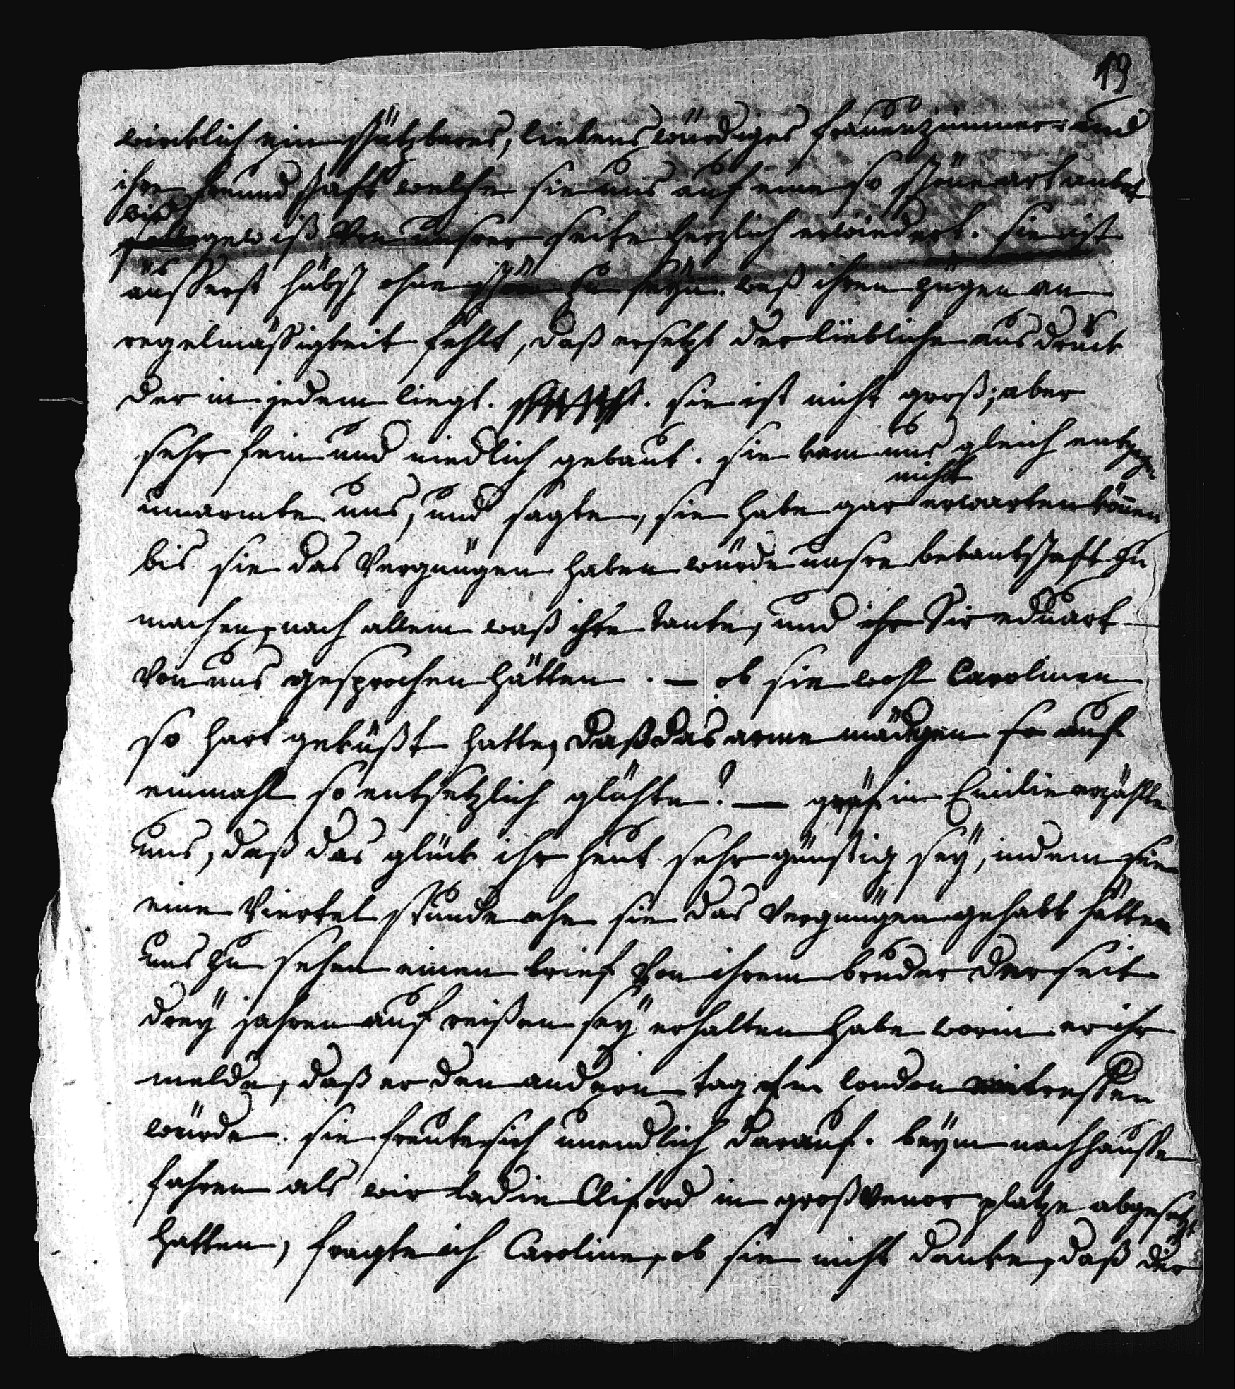 19
wircklich ein schätzbares, liebenswürdiges frauenzimmer und
ihre freundschaft welche sie uns auf eine so schöne art anbot
wird
gewiß von unsrer seite herzlich erwiedert. sie ist
äusserst hübsch ohne schön zu seÿn. waß ihren zügen an
regelmässigkeit fehlt, daß ersetzt der liebliche ausdruck
der in jedem liegt. sie ist nicht groß; aber
sehr fein und niedlich gebaut. sie kam uns gleich entgegen
nicht
umarmte uns, und sagte, sie habe gar erwarten können
bis sie das Vergnügen haben würde unsre bekantschaft zu
machen, nach allem waß ihre tante, und ihr Sir eduart
von uns gesprochen hätten. — ob sie wohl Carolinen
so hart geküßt hatte, daß das arme mädgen so auf
einmahl so entsetzlich glühte? — gräfin Emilie erzählte
uns, daß das glück ihr heut sehr günstig seÿ, indem sie
eine Viertel stunde ehe sie das Vergnügen gehabt hätte
uns zu sehen einen brief von ihrem bruder der seit
dreÿ jahren auf reißen seÿ erhalten habe worin er ihr
melde, daß er den andern tag in london eintreffen
würde. sie freute sich unendlich darauf. beÿm nachhausse
fahren als wir Ladie Cliford in großvenor platze abgesetzt
hatten, fragte ich Caroline, ob sie nicht dencke, daß die